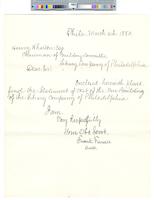 Phila. March 4th 1880
Henry Wharton Esq
Chairman of Building Committee
Library Company of Philadelphia
Dear Sir:
Enclosed herewith please
find the Statement of Cost of the New Building
of the Library Company of Philadelphia
I am
Very Respectfully
Your Obt Servt
Frank Furness